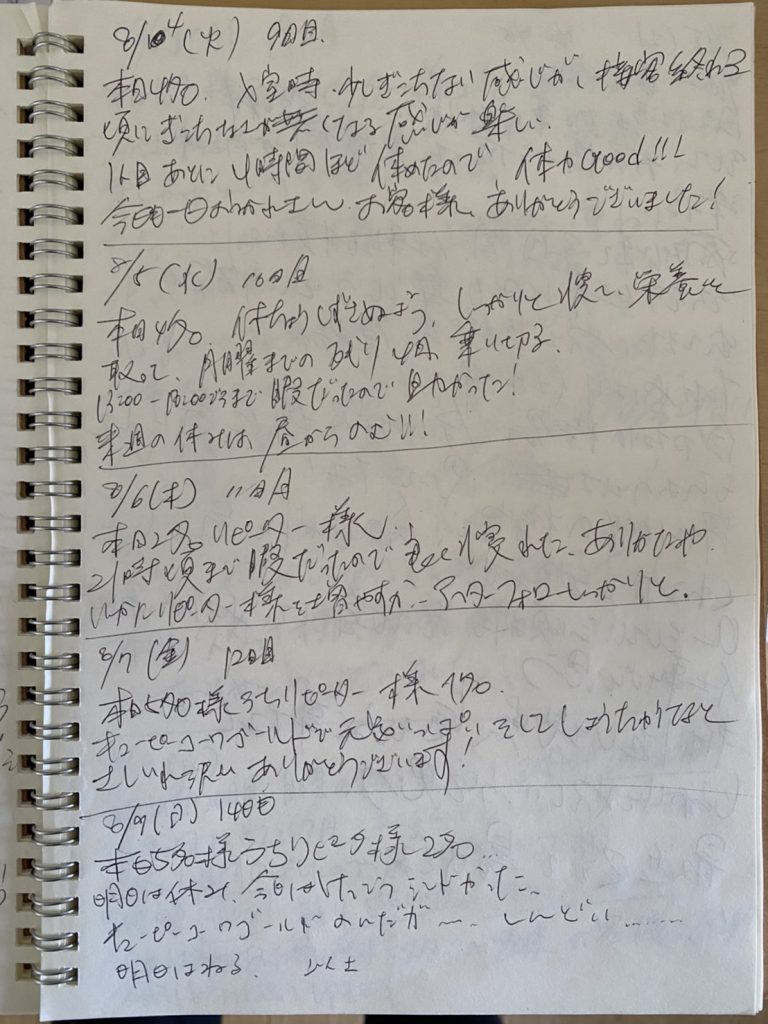 8/4(火) 9日目.
本日4名. 入室時、少しぎこちない感じが、接客終わる
頃にぎこちなさが無くなる感じが楽しい.
1人目あとに4時間ほど休めたので、体力Good!!!
今日も一日おつかれさまでした お客様、ありがとうございました!
8/5(水) 10日目
本日4名. しっかりと寝て、栄養を
取って、月曜までの残り4日、乗り切る.
まで暇だったので助かった!
来週の休みは昼からのむ!!!
8/6(木) 11日目
本日2名リピーター様.
21時頃まで暇だったので 寝れた、ありがたや.
いかにリピーター様を増やすか… アフターフォローしっかりと.
8/7(金) 12日目
本日5名様うちリピーター様1名.
キューピーコーワゴールドで元気いっぱい そして
さしいれ沢山ありがとうございます!
8/9(日) 14日目
本日5名様うちリピーター様2名...
明日は休み、今日は しんどかった…
キューピーコーワゴールドのんだが〜 しんどい………
明日はねる. 以上